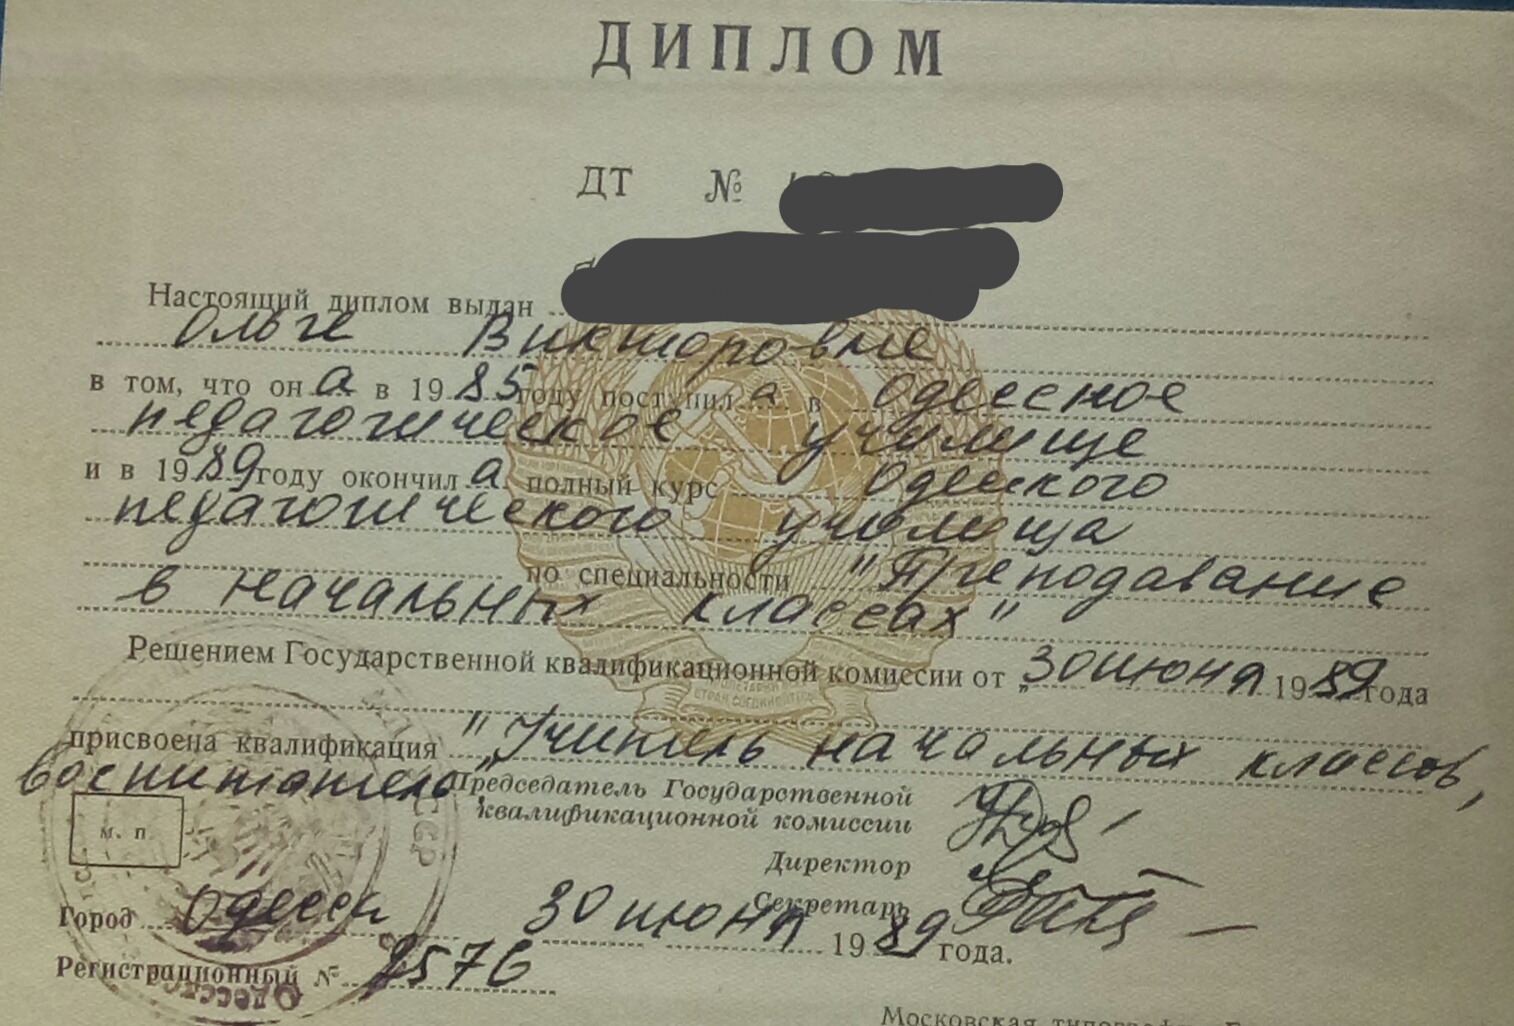 ДИПЛОМ
ДТ №
Настоящий диплом выдан
Ольге Викторовне
в том, что она в 1985 году поступила в Одесское
педагогическое училище
и в 1989 году окончила полный курс Одесского
педагогического училища
по специальности "Преподавание
в начальных классах"
Решением Государственной квалификационной комиссии от "30 июня 1989 года
присвоена квалификация "Учитель начальных классов,
воспитатель"
Председатель Государственной
квалификационной комиссии
Директор
Секретарь
м. п.
Город Одесса 30 июня 1989 года.
Регистрационный № 9576
Московская